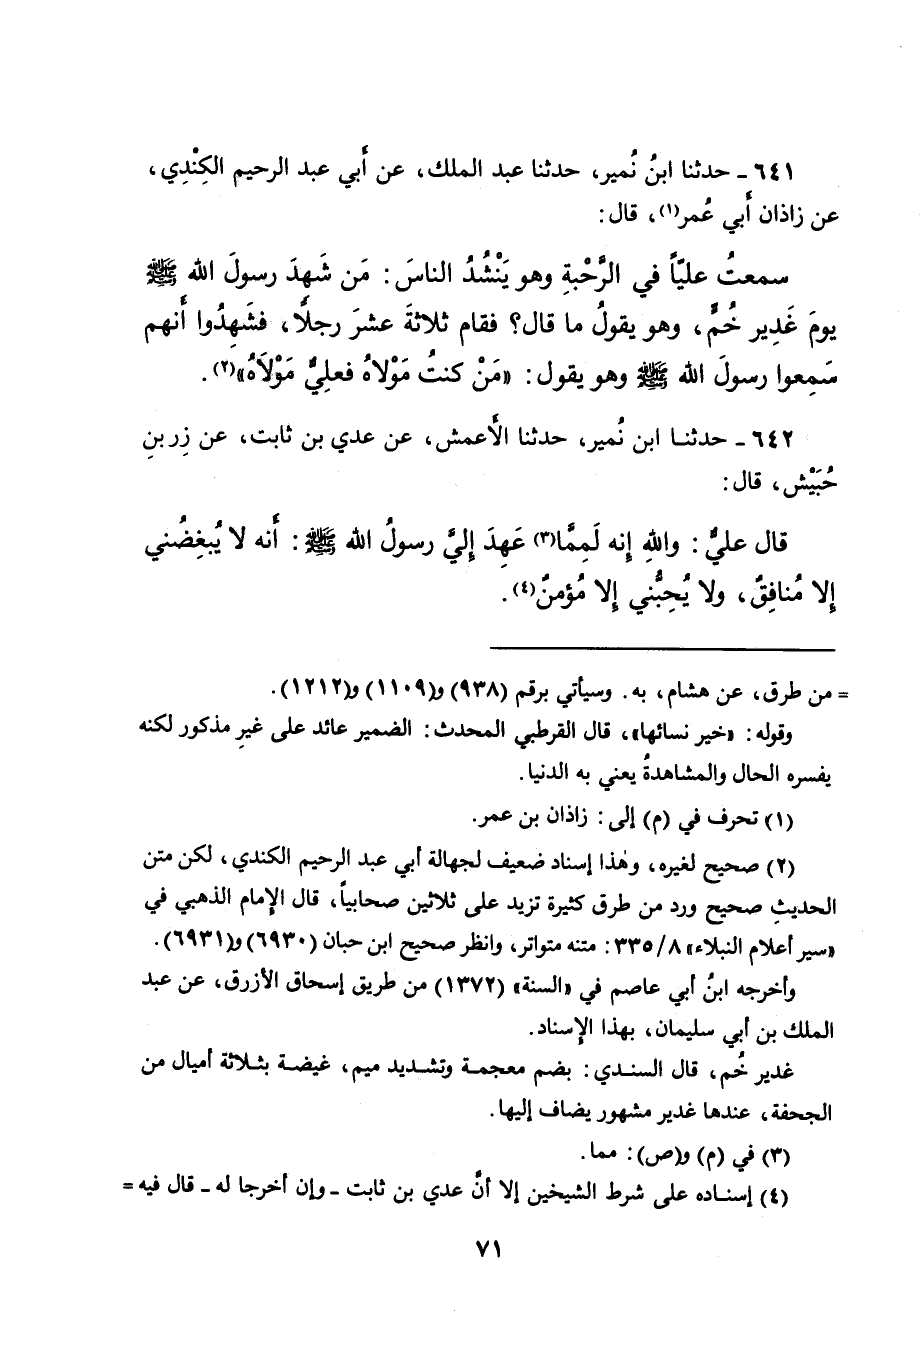 ٦٤١ ـ حدثنا ابنُ نُمير، حدثنا عبد الملك، عن أَبي عبد الرحيم الكِنْدِي،
عن زاذان أَبي عُمر(١)، قال:
سمعتُ عليّاً في الرَّحْبةِ وهو يَنْشُدُ الناسَ: مَن شَهِدَ رسولَ الله ﷺ
يومَ غَدِير خُمٍّ، وهو يقولُ ما قال؟ فقام ثلاثةَ عشرَ رجلاً، فشَهِدُوا أَنهم
سَمِعوا رسولَ الله ﷺ وهو يقول: «مَنْ كنتُ مَوْلاهُ فعليٌّ مَوْلَاهُ»(٢).
٦٤٢ ـ حدثنا ابن نُمير، حدثنا الأَعمش، عن عدي بن ثابت، عن زِر بنِ
حُبَيْش، قال:
قال عليٌّ: واللهِ إِنه لَمِمَّا(٣) عَهِدَ إِليَّ رسولُ الله ﷺ: أَنه لا يُبغِضُني
إِلا مُنافِقٌ، ولا يُحِبُّني إِلا مُؤمنٌ(٤).
= من طرق، عن هشام، به. وسيأتي برقم (٩٣٨) و(١١٠٩) و(١٢١٢).
وقوله: «خير نسائها»، قال القرطبي المحدث: الضمير عائد على غيرِ مذكور لكنه
يفسره الحال والمشاهدةُ يعني به الدنيا.
(١) تحرف في (م) إلى: زاذان بن عمر.
(٢) صحيح لغيره، وهٰذا إسناد ضعيف لجهالة أبي عبد الرحيم الكندي، لكن متن
الحديثِ صحيح ورد من طرق كثيرة تزيد على ثلاثين صحابياً، قال الإمام الذهبي في
«سير أعلام النبلاء» ٣٣٥/٨: متنه متواتر، وانظر صحيح ابن حبان (٦٩٣٠) و(٦٩٣١).
وأخرجه ابنُ أبي عاصم في «السنة» (١٣٧٢) من طريق إسحاق الأزرق، عن عبد
الملك بن أبي سليمان، بهذا الإسناد.
غدير خُم، قال السندي: بضم معجمة وتشديد ميم، غيضة بثلاثة أميال من
الجحفة، عندها غدير مشهور يضاف إليها.
(٣) في (م) و(ص): مما.
(٤) إسناده على شرط الشيخين إلا أنَّ عدي بن ثابت ـ وإن أخرجا له ـ قال فيه =
٧١